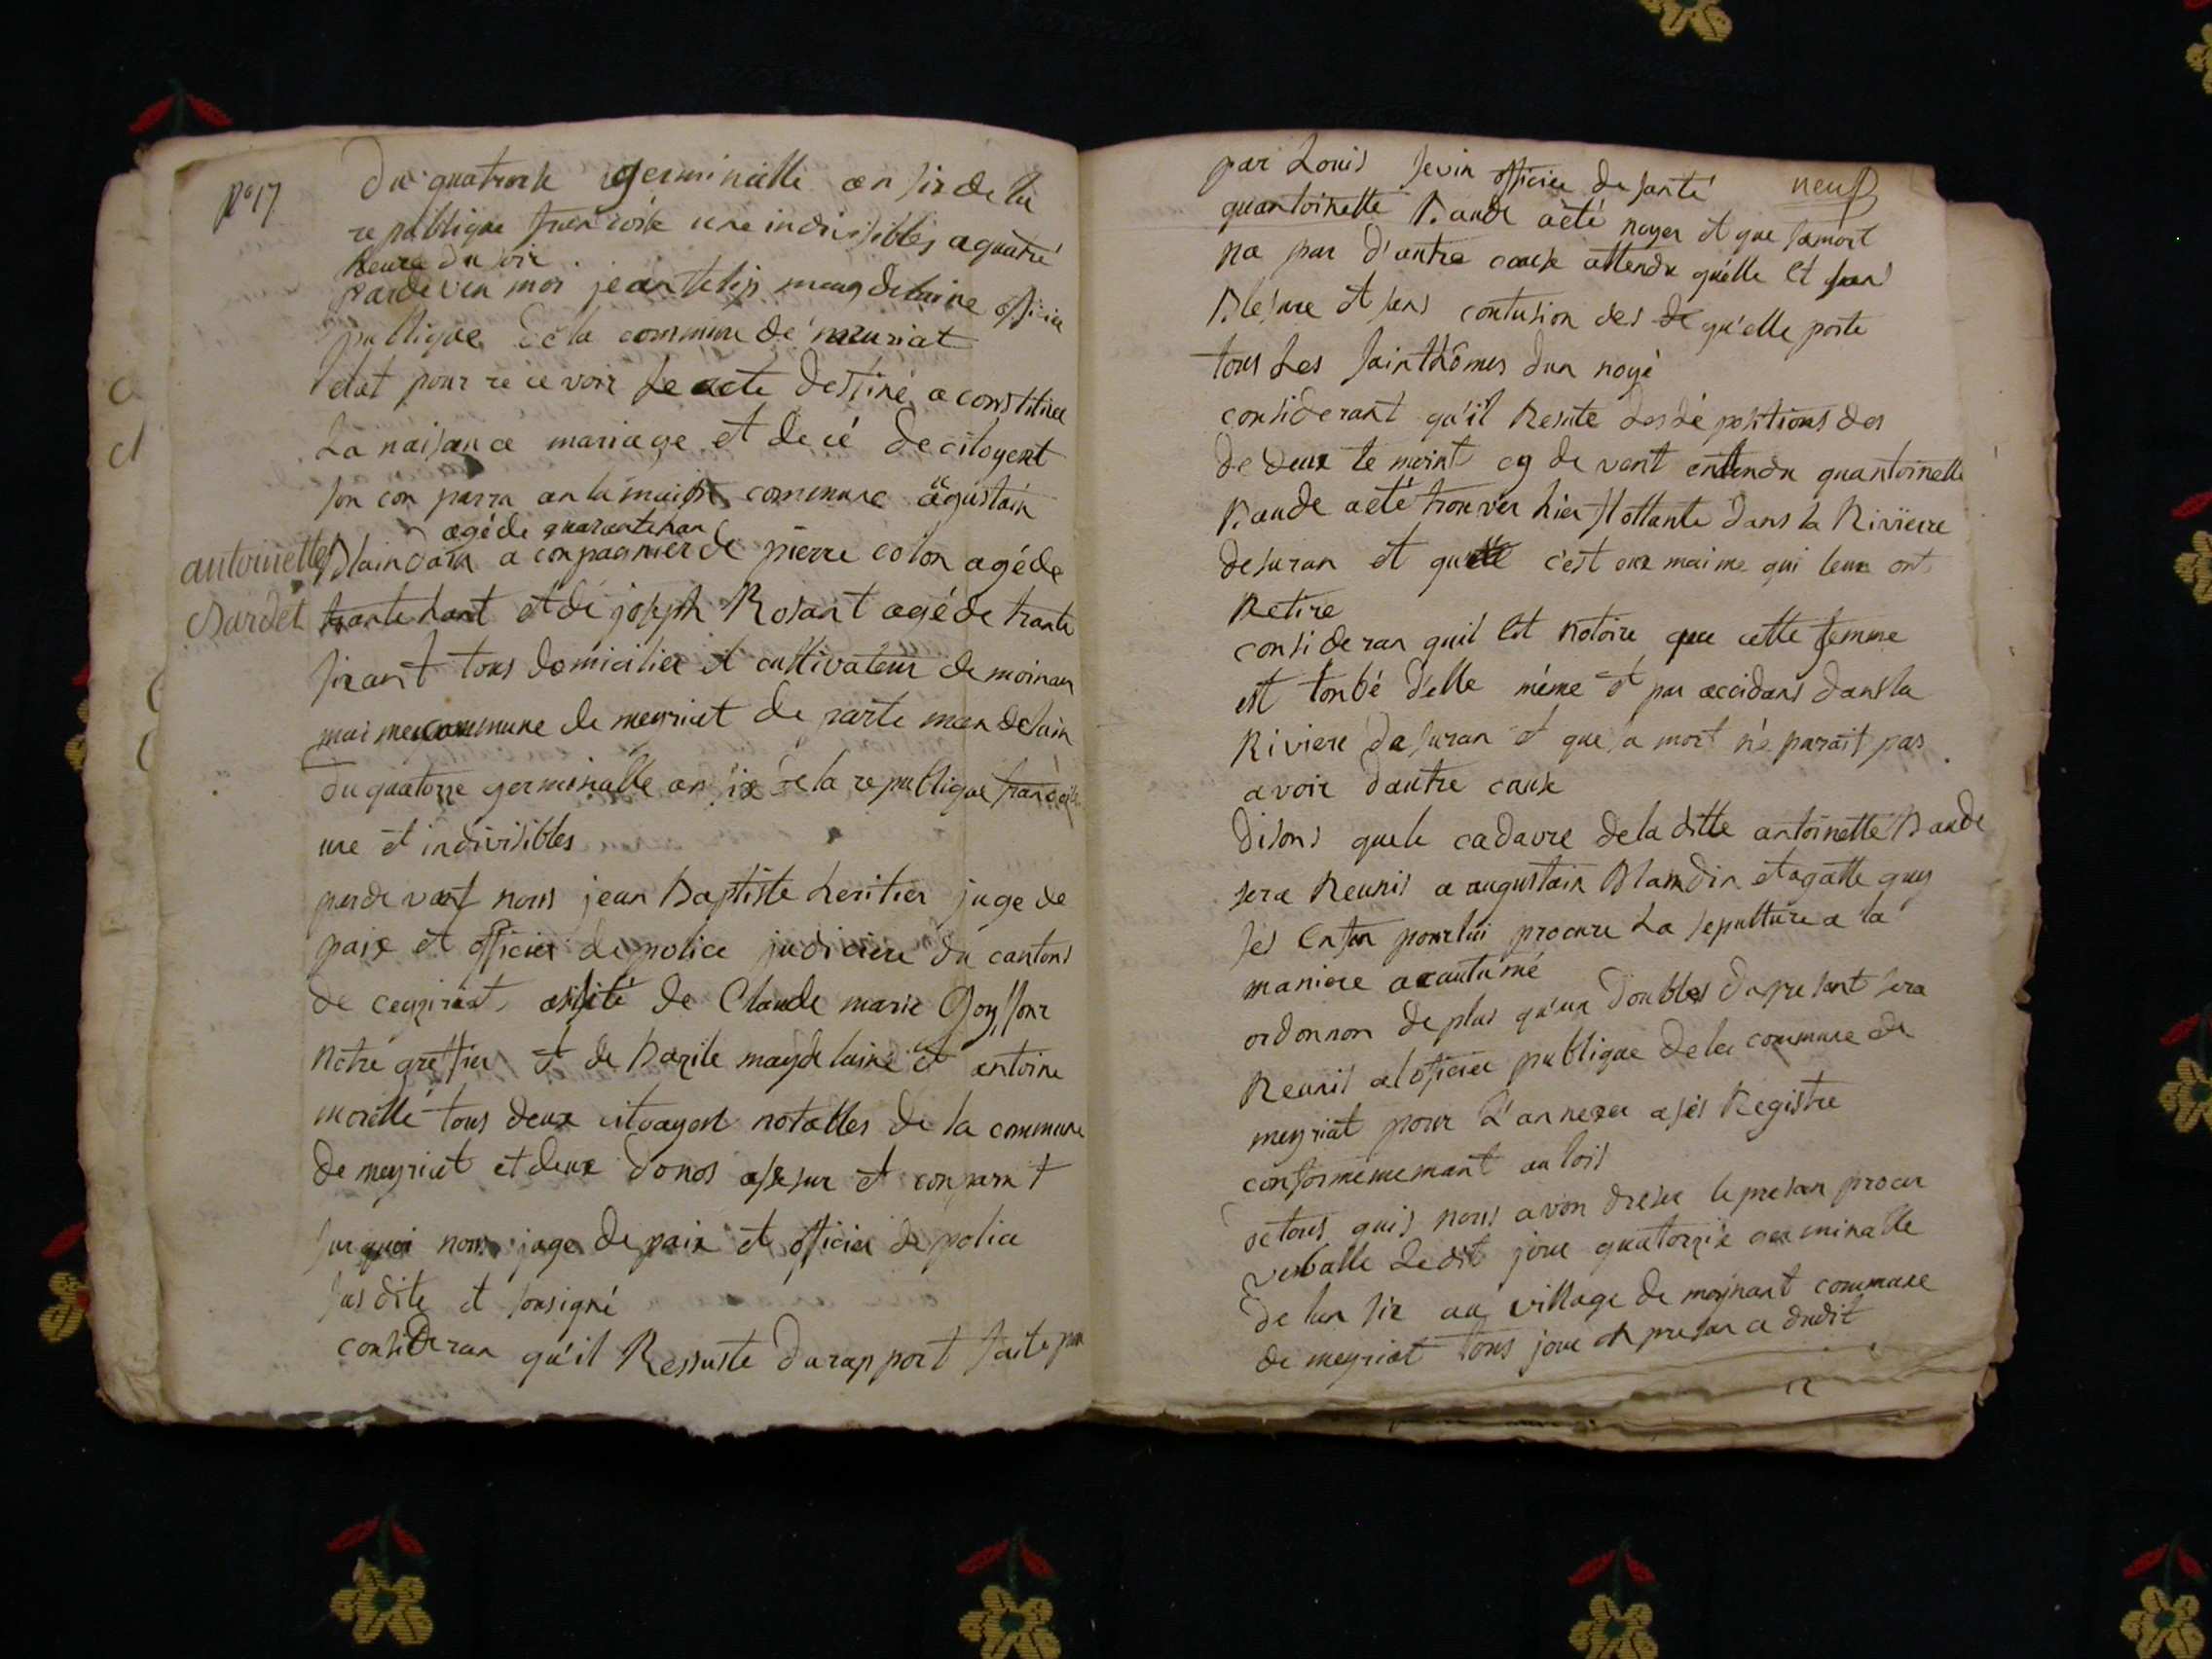 N° 17
Du quatorse germinalle an six de la
republique francoise une indivisibles a quatre
heure du soir
pardeven moi jean felix magdelaine officier
publique de la commune de meuriat
elut pour recevoir le acte destiné a constituer
La naisance mariage et decé de citoyent
son con parru an la maison commune augustain
agé de quarante han
antoinette
Bardet
Blaindain a conpagnier de pierre colon agé de
trante hant et de joseph Rosant agé de trante
sixant tous domicilier et cultivateur de moinan
mai me commune de meuriat de parte man de
du quatorze germinalle an six de la republique francoise
une et indivisibles
par de vant nous jean Baptiste heritier juge de
paix et officier de police judiciere du cantons
de ceyziriat asisté de Claude marie Goyffonr
notre greffier et de Bazile magdelaine et antoine
morelle tous deux citoayent notables de la commune
de meyriat et deux do nos assesur et conparut
sur quoi nous juge de paix et officier de police
susdite et sousigné
consideran qu'il Ressuste du rapport faite par
neuf
par Louis sevin officier de santé
quantoinette Baude a été noyer et que sa mort
na par d'autre cause attendu quelle et sans
Blesure et sans contusion des de qu'elle porte
tous Les sainthômes dun noyé
considerant qu'il Resute des dé positions des
de deux te moint cy de vant entendu quantoinelle
Baude a eté trouver hier flottante dans la Riviere
de suran et quelle c'est eux maime qui leux ont
Retire
consideran quil est notoire que cette femme
est tonbé d'elle même et par accidans dans la
Riviere de suran et que sa mort né parait pas
avoir dautre cause
Disons quele cadavre de la ditte antoinette Baude
sera Reunis a augustain Blandin et agatte guy
ses enfan pour lui procure La sepulture a la
maniere acautumé
ordonnon de plus qu'un Doubles du presant sera
Reunis a l officier publique de la commune de
meyriat pour L'annexer a ses Registre
conformememant au lois
de tous quis nous avon dresse le presan proces
verballe Ledit jour quatorzie germinalle
de lan six au village de moynant commune
de meyriat tous jour en presan ce dudit